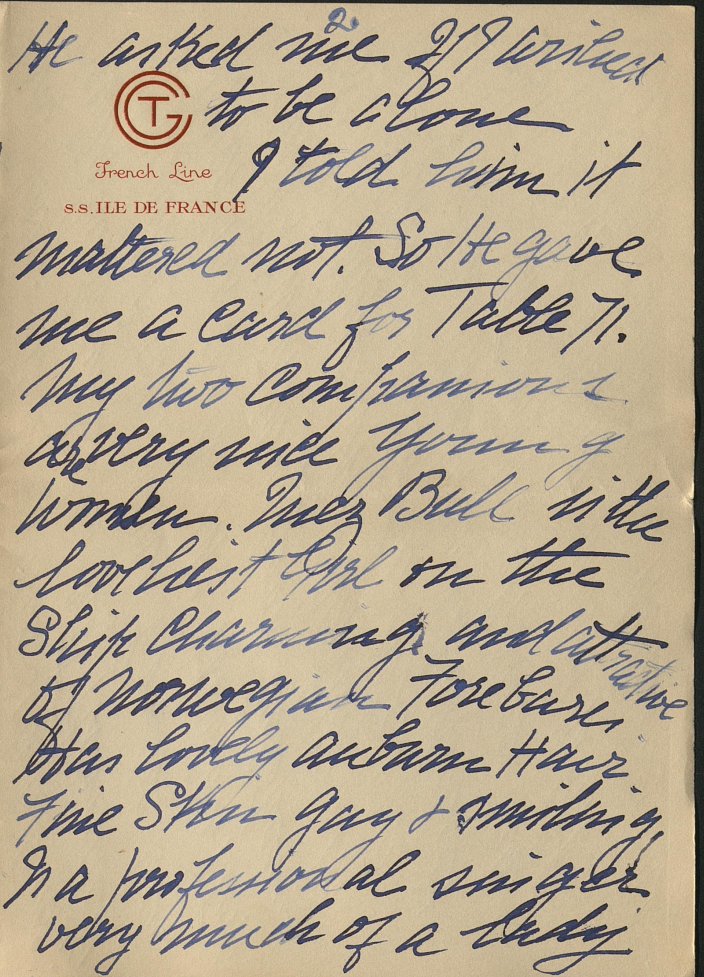 2.
He asked me If I wished
to be alone
GTC
French Line
I told him it
s.s. ILE DE FRANCE
mattered not. So He gave
me a card for Table 71.
My two companions
are very nice young
women. Inez Bull is the
loveliest Girl on the
Ship Charming and attractive
of Norwegian Forebears
Has lovely auburn Hair
Fine Skin gay & smiling,
Is a professional singer
very much of a lady